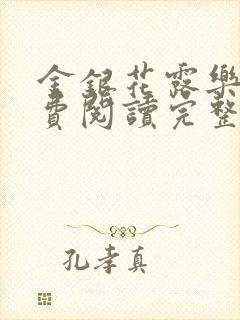 金銀花露樂
費閱讀完整
孔孝真